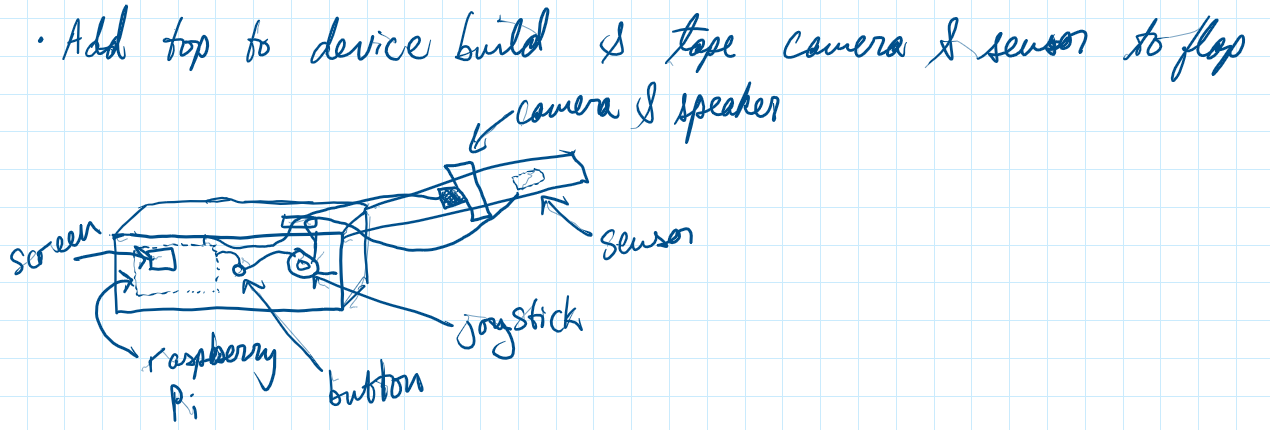 • Add top to device build & tape camera & sensor to flap
camera & speaker
screen
sensor
joystick
raspberry
Pi
button